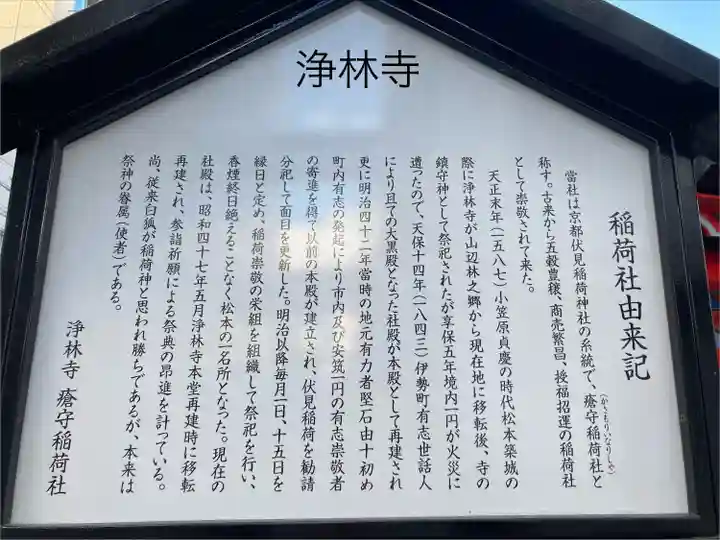 浄林寺
稲荷社由来記
當社は京都伏見稲荷神社の系統で、瘡守稲荷社と
(かさもりいなりしゃ)
称す。古来から五穀豊穣、商売繁昌、授福招運の稲荷社
として崇敬されて来た。
天正末年(一五八七)小笠原貞慶の時代松本築城の
際に浄林寺が山辺林之郷から現在地に移転後、寺の
鎮守神として祭祀されたが享保五年境内一円が火災に
遭ったので、天保十四年(一八四三)伊勢町有志世話人
により旦ての大黒殿となった社殿が本殿として再建され
更に明治四十二年當時の地元有力者堅石由十初め
町内有志の発起により市内及び安筑一円の有志崇敬者
の寄進を得て以前の本殿が建立され、伏見稲荷を勧請
分祀して面目を更新した。明治以降毎月一日、十五日を
縁日と定め、稲荷崇敬の栄組を組織して祭祀を行い、
香煙終日絶えることなく松本の一名所となった。現在の
社殿は、昭和四十七年五月浄林寺本堂再建時に移転
再建され、参詣祈願による祭典の昂進を計っている。
尚、従来白狐が稲荷神と思われ勝ちであるが、本来は
祭神の眷属(使者)である。
浄林寺 瘡守稲荷社